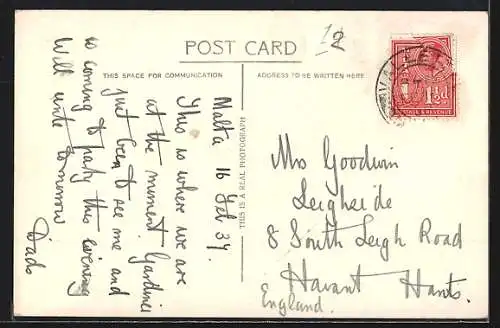 POST CARD
12
THIS SPACE FOR COMMUNICATION
ADDRESS TO BE WRITTEN HERE
THIS IS A REAL PHOTOGRAPH
Malta 16 Feb 37.
This is where we are
at the moment. Gardiner
just been to see me and
is coming to party this evening
Will write tomorrow
Dads
VALLET
1½d
POSTAGE & REVENUE
Mrs Goodwin
Leighside
8 South Leigh Road
Havant Hants.
England.